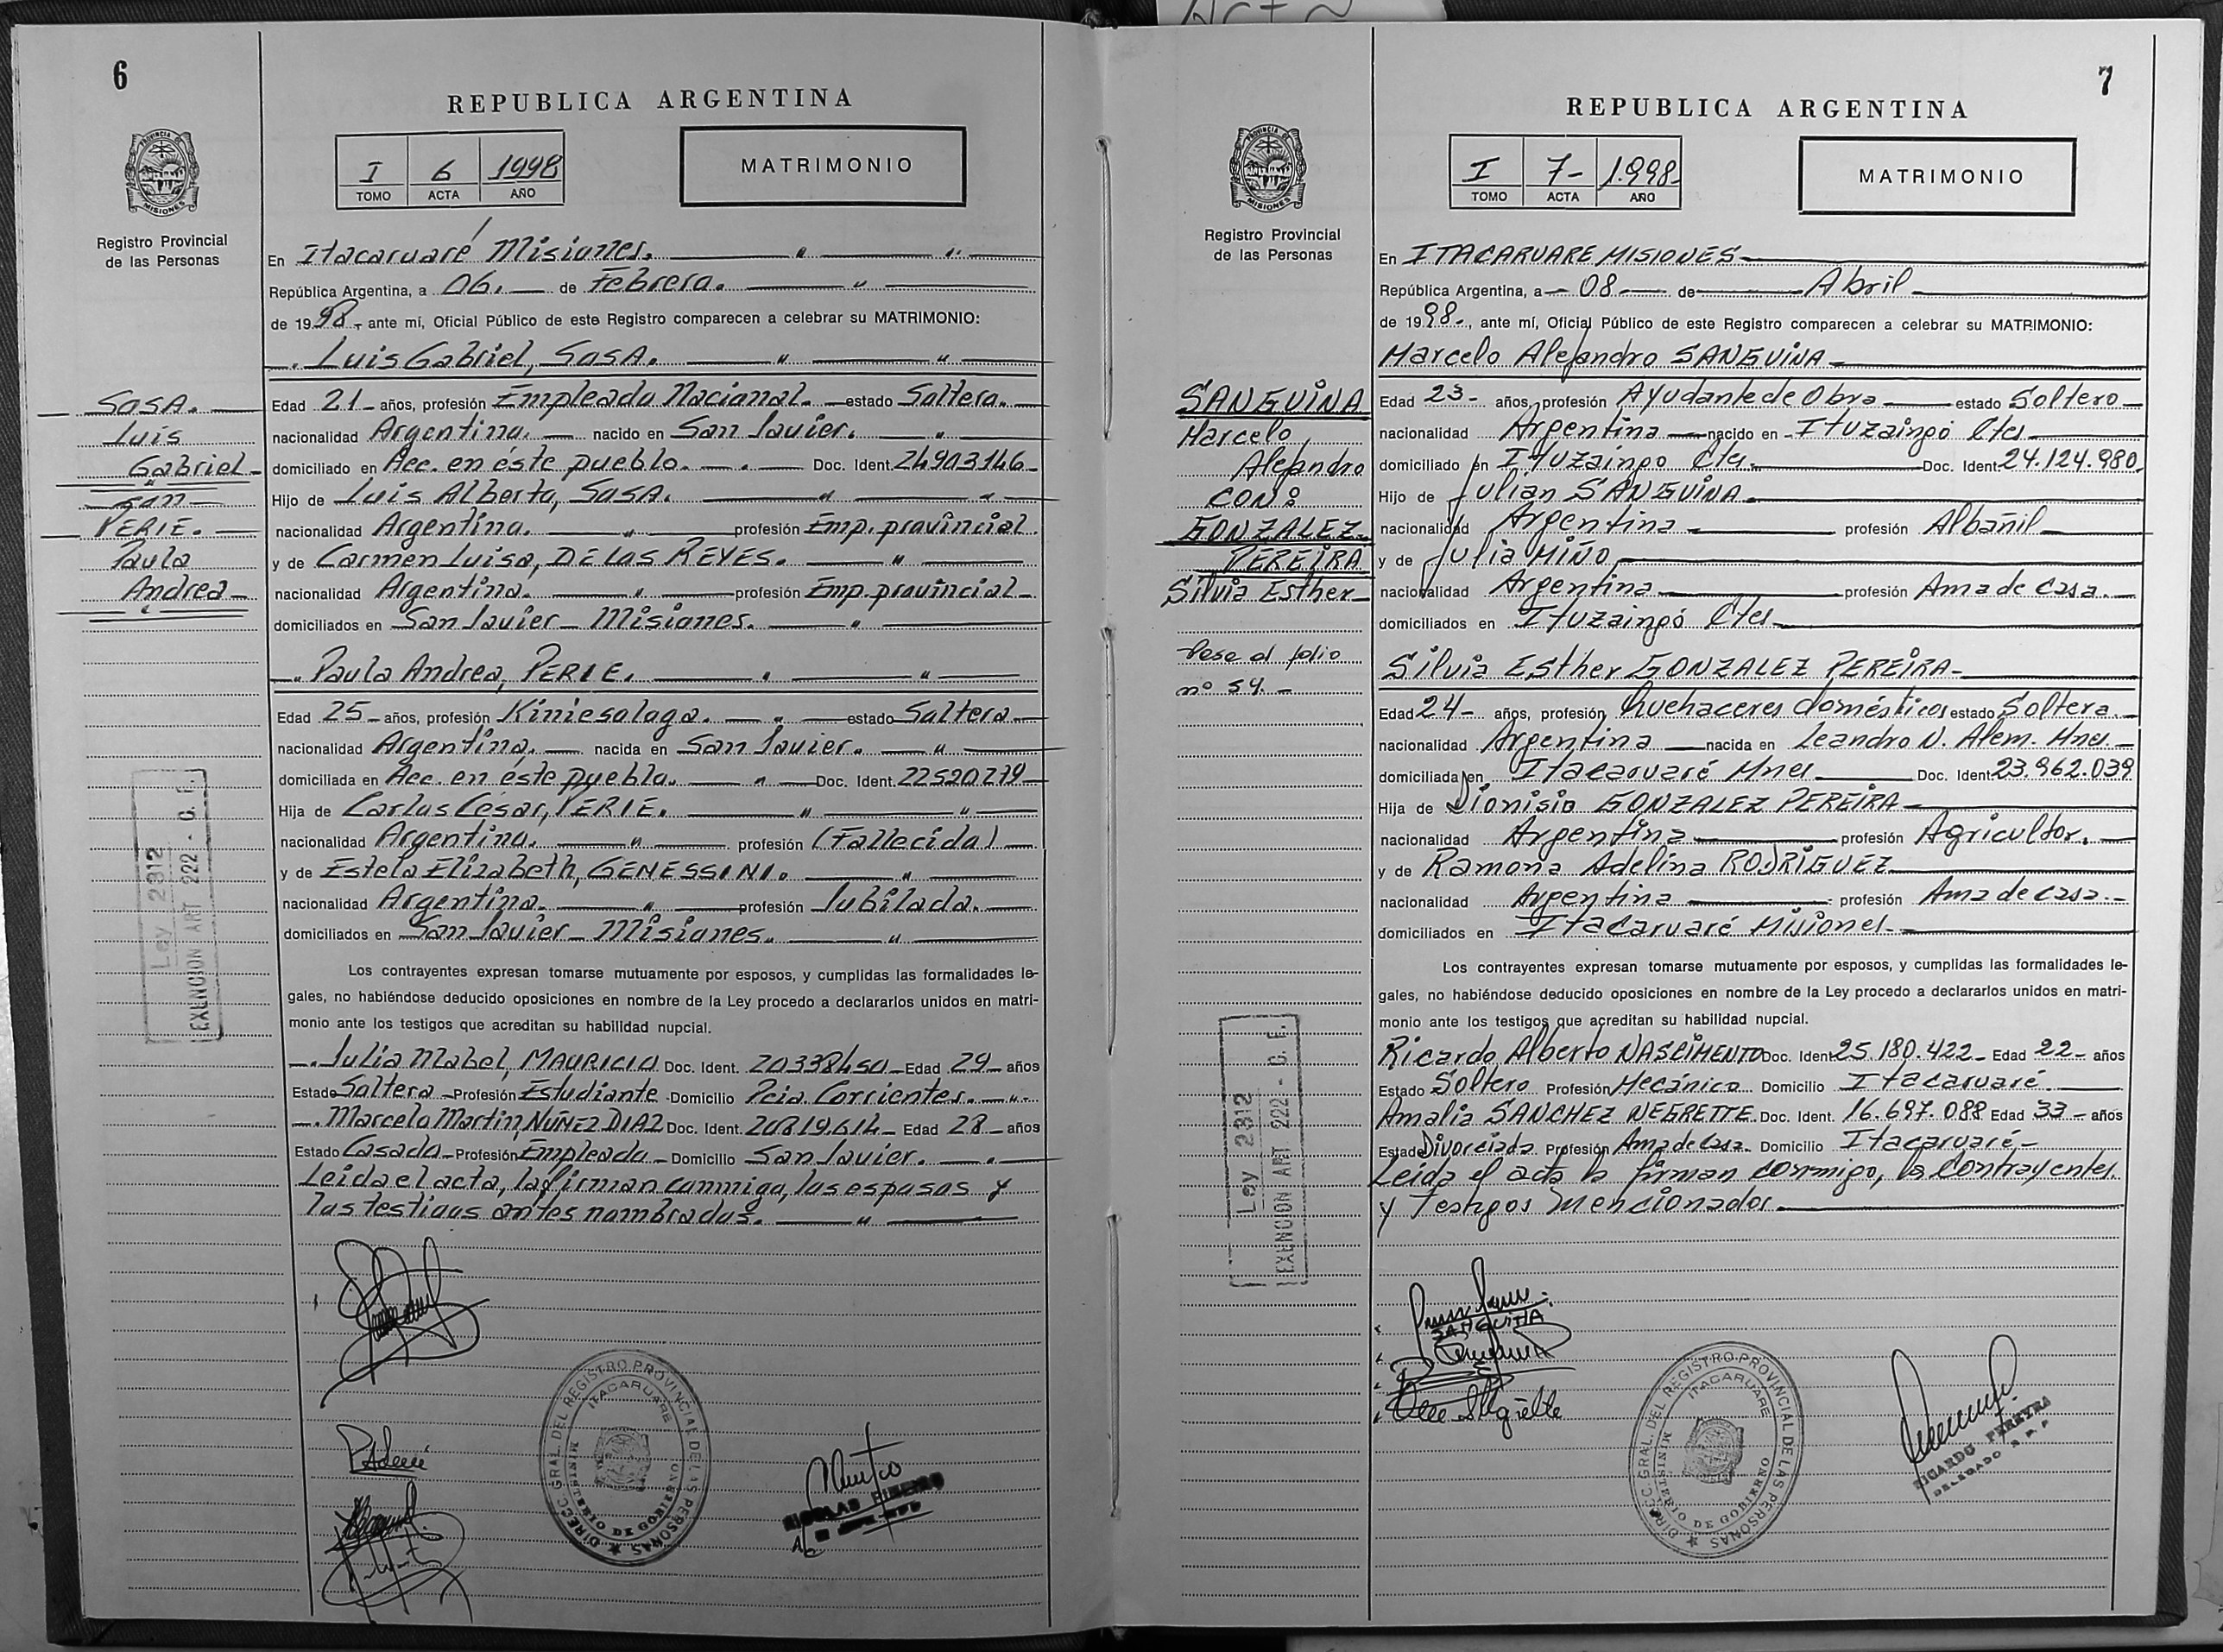 Acta
6
REPUBLICA ARGENTINA
I 6 1998
TOMO ACTA AÑO
MATRIMONIO
PROVINCIA DE MISIONES
Registro Provincial
de las Personas
En Itacaruaré Misiones. " "
República Argentina, a 06. de Febrero. "
de 1998 , ante mí, Oficial Público de este Registro comparecen a celebrar su MATRIMONIO:
. Luis Gabriel, SosA. " "
Edad 21 años, profesión Empleado Nacional. estado Soltero.
nacionalidad Argentina. nacido en San Javier. "
domiciliado en Acc. en éste pueblo. . Doc. Ident. 24903146
Hijo de Luis Alberto, SosA. " "
nacionalidad Argentina. " profesión Emp. provincial.
y de Carmen Luisa, DE LOS REYES. "
nacionalidad Argentina. " profesión Emp. provincial
domiciliados en San Javier - Misiones. "
. Paula Andrea, PERIE. " "
Edad 25 años, profesión Kinesologa. " estado Soltera
nacionalidad Argentina. nacida en San Javier. "
domiciliada en Acc. en éste pueblo. " Doc. Ident. 22520279
Hija de Carlos César, PERIE. " "
nacionalidad Argentina. " profesión (Fallecido)
y de Estela Elizabeth, GENESSINI. "
nacionalidad Argentina. " profesión Jubilada.
domiciliados en San Javier - Misiones. "
Los contrayentes expresan tomarse mutuamente por esposos, y cumplidas las formalidades le-
gales, no habiéndose deducido oposiciones en nombre de la Ley procedo a declararlos unidos en matri-
monio ante los testigos que acreditan su habilidad nupcial.
. Julia Mabel, MAURICIO Doc. Ident. 20338450 Edad 29 años
Estado Soltera Profesión Estudiante Domicilio Pcia Corrientes. "
. Marcelo Martin, NUÑEZ DIAZ Doc. Ident. 20819.614 Edad 28 años
Estado Casado Profesión Empleado Domicilio San Javier. .
Leida el acta, la firman conmigo, los esposos y
los testigos antes nombrados. "
SosA.
Luis
Gabriel
con
PERIE.
Paula
Andrea
Ley 2312
EXENCION ART 222 - C. F.
DIRECC. GRAL. DEL REGISTRO PROVINCIAL DE LAS PERSONAS
ITACARUARE
MINISTERIO DE GOBIERNO
7
REPUBLICA ARGENTINA
I 7- 1.998-
TOMO ACTA AÑO
MATRIMONIO
PROVINCIA DE MISIONES
Registro Provincial
de las Personas
En ITACARUARE MISIONES
República Argentina, a 08 de Abril
de 1998-, ante mí, Oficial Público de este Registro comparecen a celebrar su MATRIMONIO:
Marcelo Alejandro SANGUINA
Edad 23- años, profesión Ayudante de Obra estado Soltero
nacionalidad Argentina nacido en - Ituzaingó Ctes
domiciliado en Ituzaingó Ctes. Doc. Ident. 24.124.980
Hijo de Julian SANGUINA
nacionalidad Argentina profesión Albañil
y de Julia MIÑO
nacionalidad Argentina profesión Ama de casa.
domiciliados en Ituzaingó Ctes
Silvia Esther GONZALEZ PEREIRA-
Edad 24- años, profesión Quehaceres domésticos estado Soltera.
nacionalidad Argentina nacida en Leandro N. Alem. Mnes.
domiciliada en Itacaruaré Mnes Doc. Ident. 23.962.039
Hija de Dionisio GONZALEZ PEREIRA
nacionalidad Argentina profesión Agricultor.
y de Ramona Adelina RODRIGUEZ
nacionalidad Argentina profesión Ama de casa.-
domiciliados en Itacaruaré Misiones-
Los contrayentes expresan tomarse mutuamente por esposos, y cumplidas las formalidades le-
gales, no habiéndose deducido oposiciones en nombre de la Ley procedo a declararlos unidos en matri-
monio ante los testigos que acreditan su habilidad nupcial.
Ricardo Alberto NASCIMENTO Doc. Ident. 25.180.422- Edad 22- años
Estado Soltero Profesión Mecánico Domicilio Itacaruaré
Amalia SANCHEZ NEGRETTE. Doc. Ident. 16.697.088 Edad 33 años
Estado Divorciada Profesión Ama de Casa Domicilio Itacaruaré-
Leida el acta la firman conmigo, los contrayentes.
y Testigos mencionados
SANGUINA
Marcelo,
Alejandro
CON:
GONZALEZ
PEREIRA
Silvia Esther
Pase al folio
nº 54. -
Ley 2312
EXENCION ART 222 - C. F.
SANGUINA
DIRECC. GRAL. DEL REGISTRO PROVINCIAL DE LAS PERSONAS
ITACARUARE
MINISTERIO DE GOBIERNO
RICARDO PEREYRA
DELEGADO R. P. P